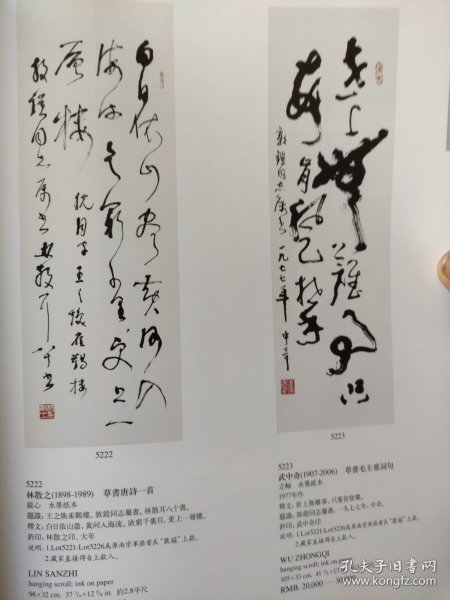 白日依山盡黃河入
海流欲窮千里更上一
層樓
5222
5223
5222
林散之(1898-1989) 草書唐詩一首
鏡心 水墨紙本
題識：王之煥雀鸛樓。敦鎧同志屬書。林散耳八十書。
釋文：白日依山盡，黃河入海流。欲窮千裏目，更上一層樓。
鈐印：林散之印、大年
說明：1.Lot5221-Lot5226爲原南京軍區首長“敦鎧”上款。
2.藏家直接得自上款人。
LIN SANZHI
hanging scroll; ink on paper
96×32 cm. 37 3/4×12 5/8 in. 約2.8平尺
5223
武中奇(1907-2006) 草書毛主席詞句
立軸 水墨紙本
1977年作
釋文：世上無難事，只要肯登攀。
題識：敦鎧同志屬書。一九七七年，中奇。
鈐印：武中奇印
說明：1.Lot5221-Lot5226爲原南京軍區首長“敦鎧”上款。
2.藏家直接得自上款人。
WU ZHONGQI
hanging scroll; ink on paper
105×33 cm. 41
RMB: 20,000
孔夫子旧书网
www.kongfz.com